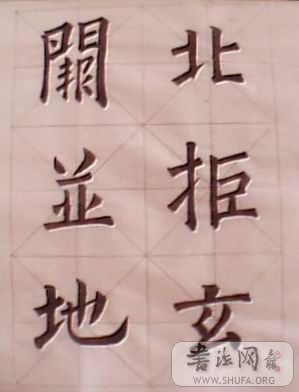 北拒玄
闕並地
書法网
WWW.SHUFA.ORG